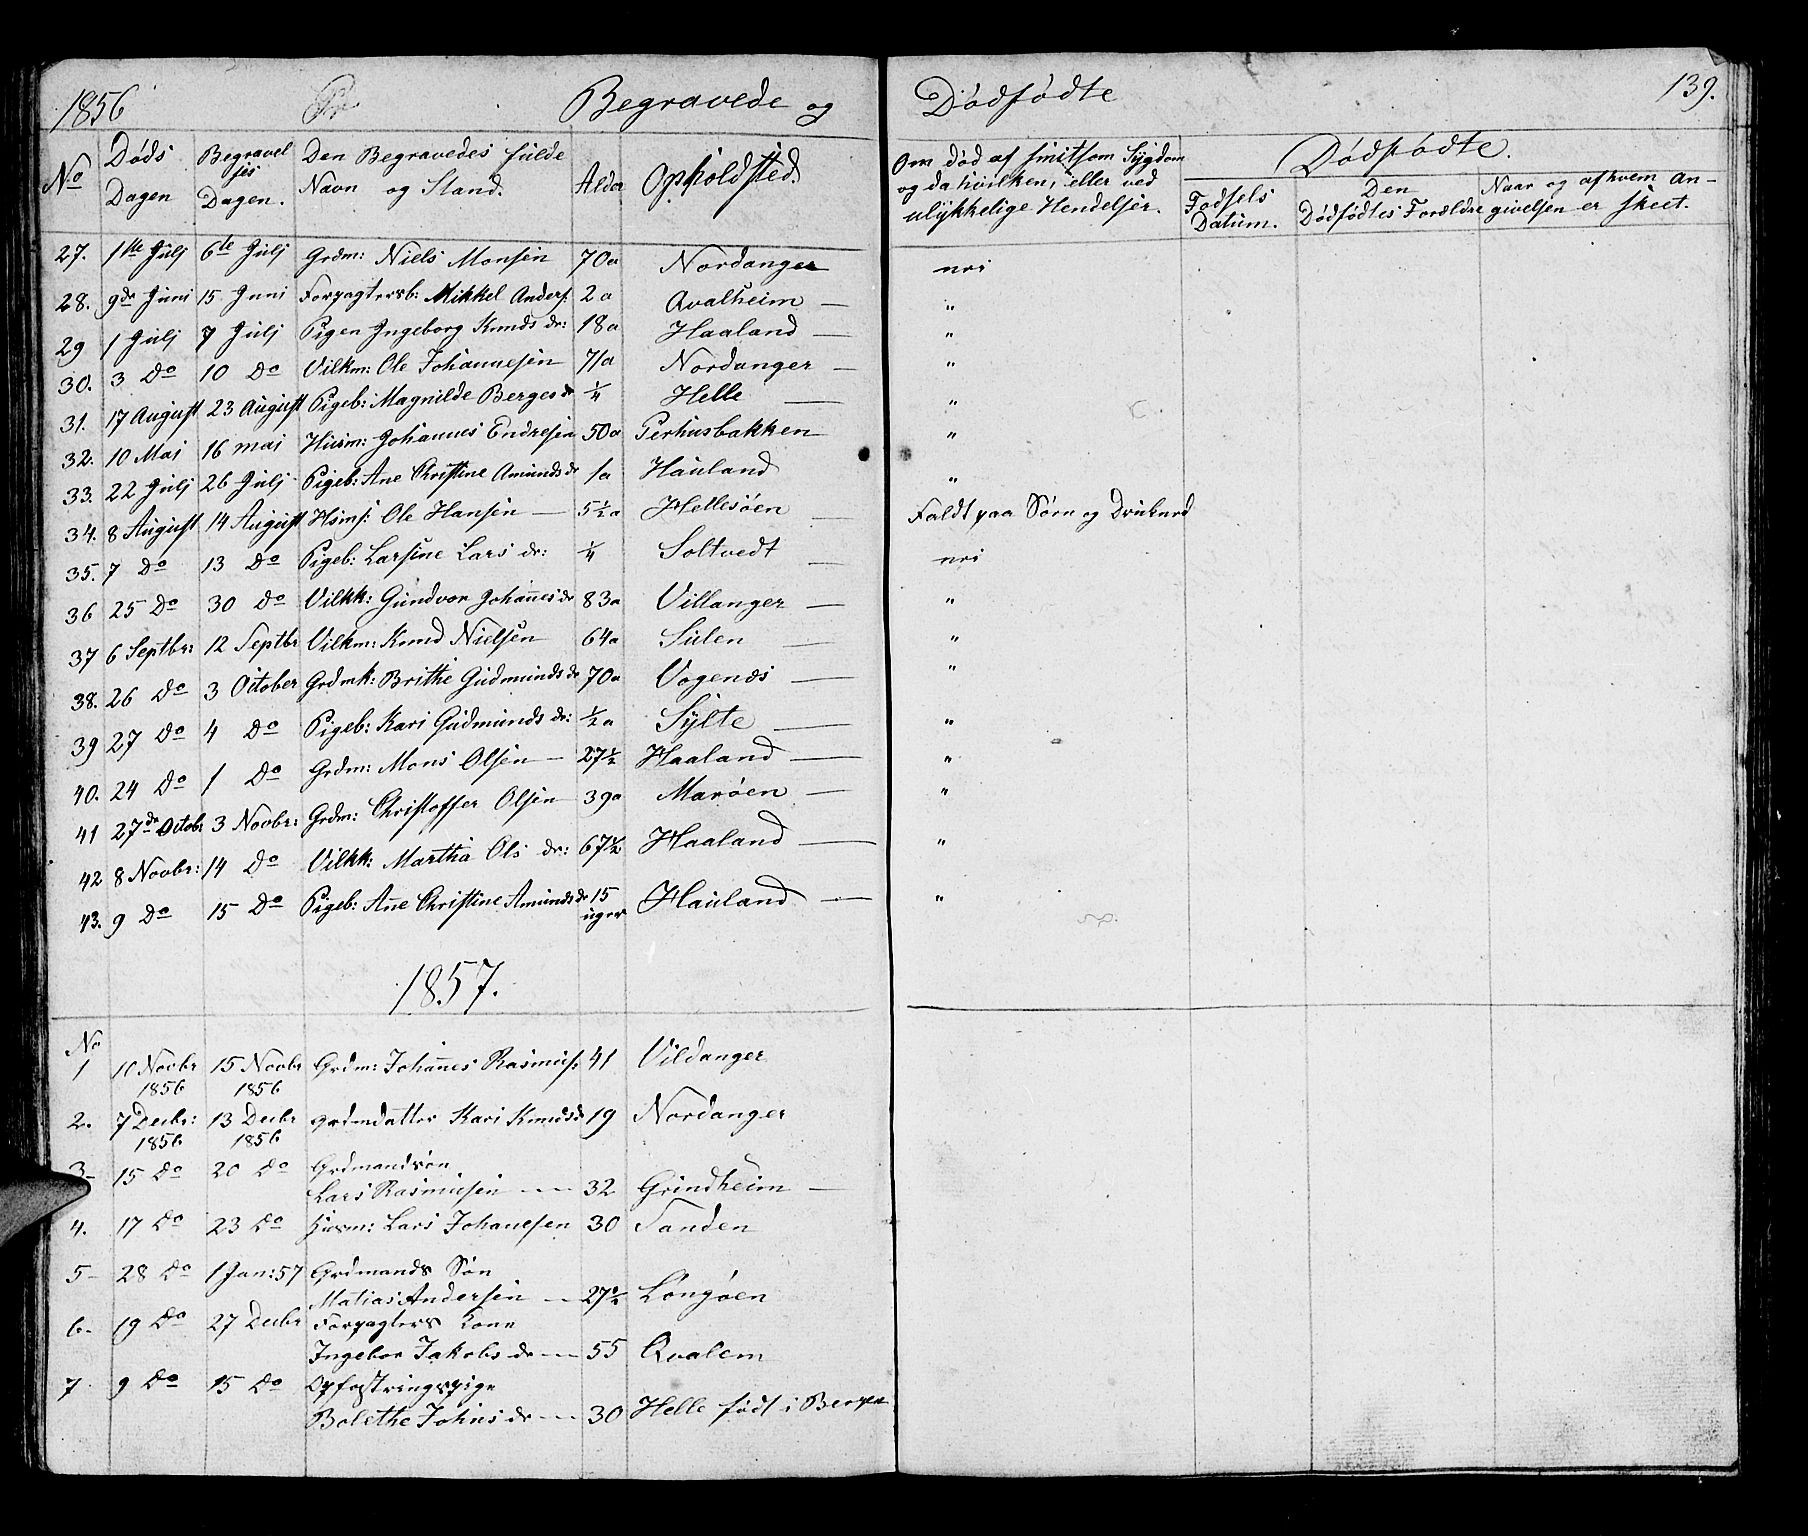 1856 Begravede og Dødfødte 139.
No Døds Dagen Begravelses Dagen. Den Begravedes fulde Navn og Stand. Alder Opholdsted. Om død af smitsom Sygdom og da hvilken, eller ved ulykkelige Hendelser. Dødfødte.
Fødsels Datum. Den Dødfødtes Forældre Naar og af hvem angivelsen er skeet.
27. 1ste Julj 6te Julj Grdm: Niels Monsen 70a Nordanger nei
28. 9de Juni 15 Juni Forpagtersb: Mikkel Anders: 2a Qvalheim — "
29 1 Julj 7 Julj Pigen Ingeborg Knuds dr: 18a Haaland — "
30. 3 Do 10 Do Vilkm: Ole Johannesen 71a Nordanger — "
31. 17 August 23 August Pigeb: Magnilde Berges dr ¼ Helle — "
32. 10 Mai 16 mai Husm: Johannes Endresen 50a Perhusbakken "
33. 22 Julj 26 Julj Pigeb: Ane Christine Amunds dr 1a Hauland "
34. 8 August 14 August Hsms: Ole Hansen — 5½a Hellesøen — Faldt paa Søen og Drukned
35. 7 Do 13 Do Pigeb: Larsine Lars dr: ¼ Soltvedt — nei
36 25 Do 30 Do Vilkk: Gundvor Johannes dr 83a Villanger — "
37 6 Septbr: 12 Septbr Vilkm: Knud Nielsen 64a Sulen — "
38. 26 Do 3 October Grdmk: Brithe Gudmunds dr 70a Vogenes — "
39 27 Do 4 Do Pigeb: Kari Gudmunds dr: ½a Sylte — "
40. 24 Do 1 Do Grdm: Mons Olsen — 27½ Haaland — "
41 27de Octobr 3 Novbr: Grdm: Christoffer Olsen 39a Marøen — "
42 8 Novbr: 14 Do Vilkk: Martha Ols dr: 67½ Haaland — "
43. 9 Do 15 Do Pigeb: Ane Christine Amunds dr 15 uger Hauland — "
1857.
No
1 10 Novbr 1856 15 Novbr 1856 Grdm: Johannes Rasmus: 41 Vildanger
2. 7 Decbr: 1856 13 Decbr 1856 grdmdatter Kari Knudsdr 19 Nordanger
3- 15 Do 20 Do Grdmandsøn
Lars Rasmusen — 32 Grindheim —
4. 17 Do 23 Do Husm: Lars Johanesen 30 Sanden
5- 28 Do 1 Jan: 57 Grdmands Søn
Matias Andersen — 27½ Longøen
6- 19 Do 27 Decbr Forpagters Kone
Ingebor Jakobs dr — 55 Qvalem
7 9 Do 15 Do Opfostringspige
Bolethe Johns dr — 30 Helle født i Bergen